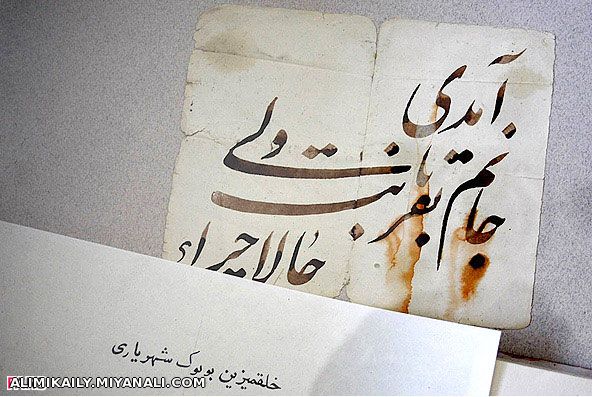 آمدی
جانم بقربانت ولی
حالا چرا
خلقمیزین بویوک شهریاری
ALIMIKAILY.MIYANALI.COM